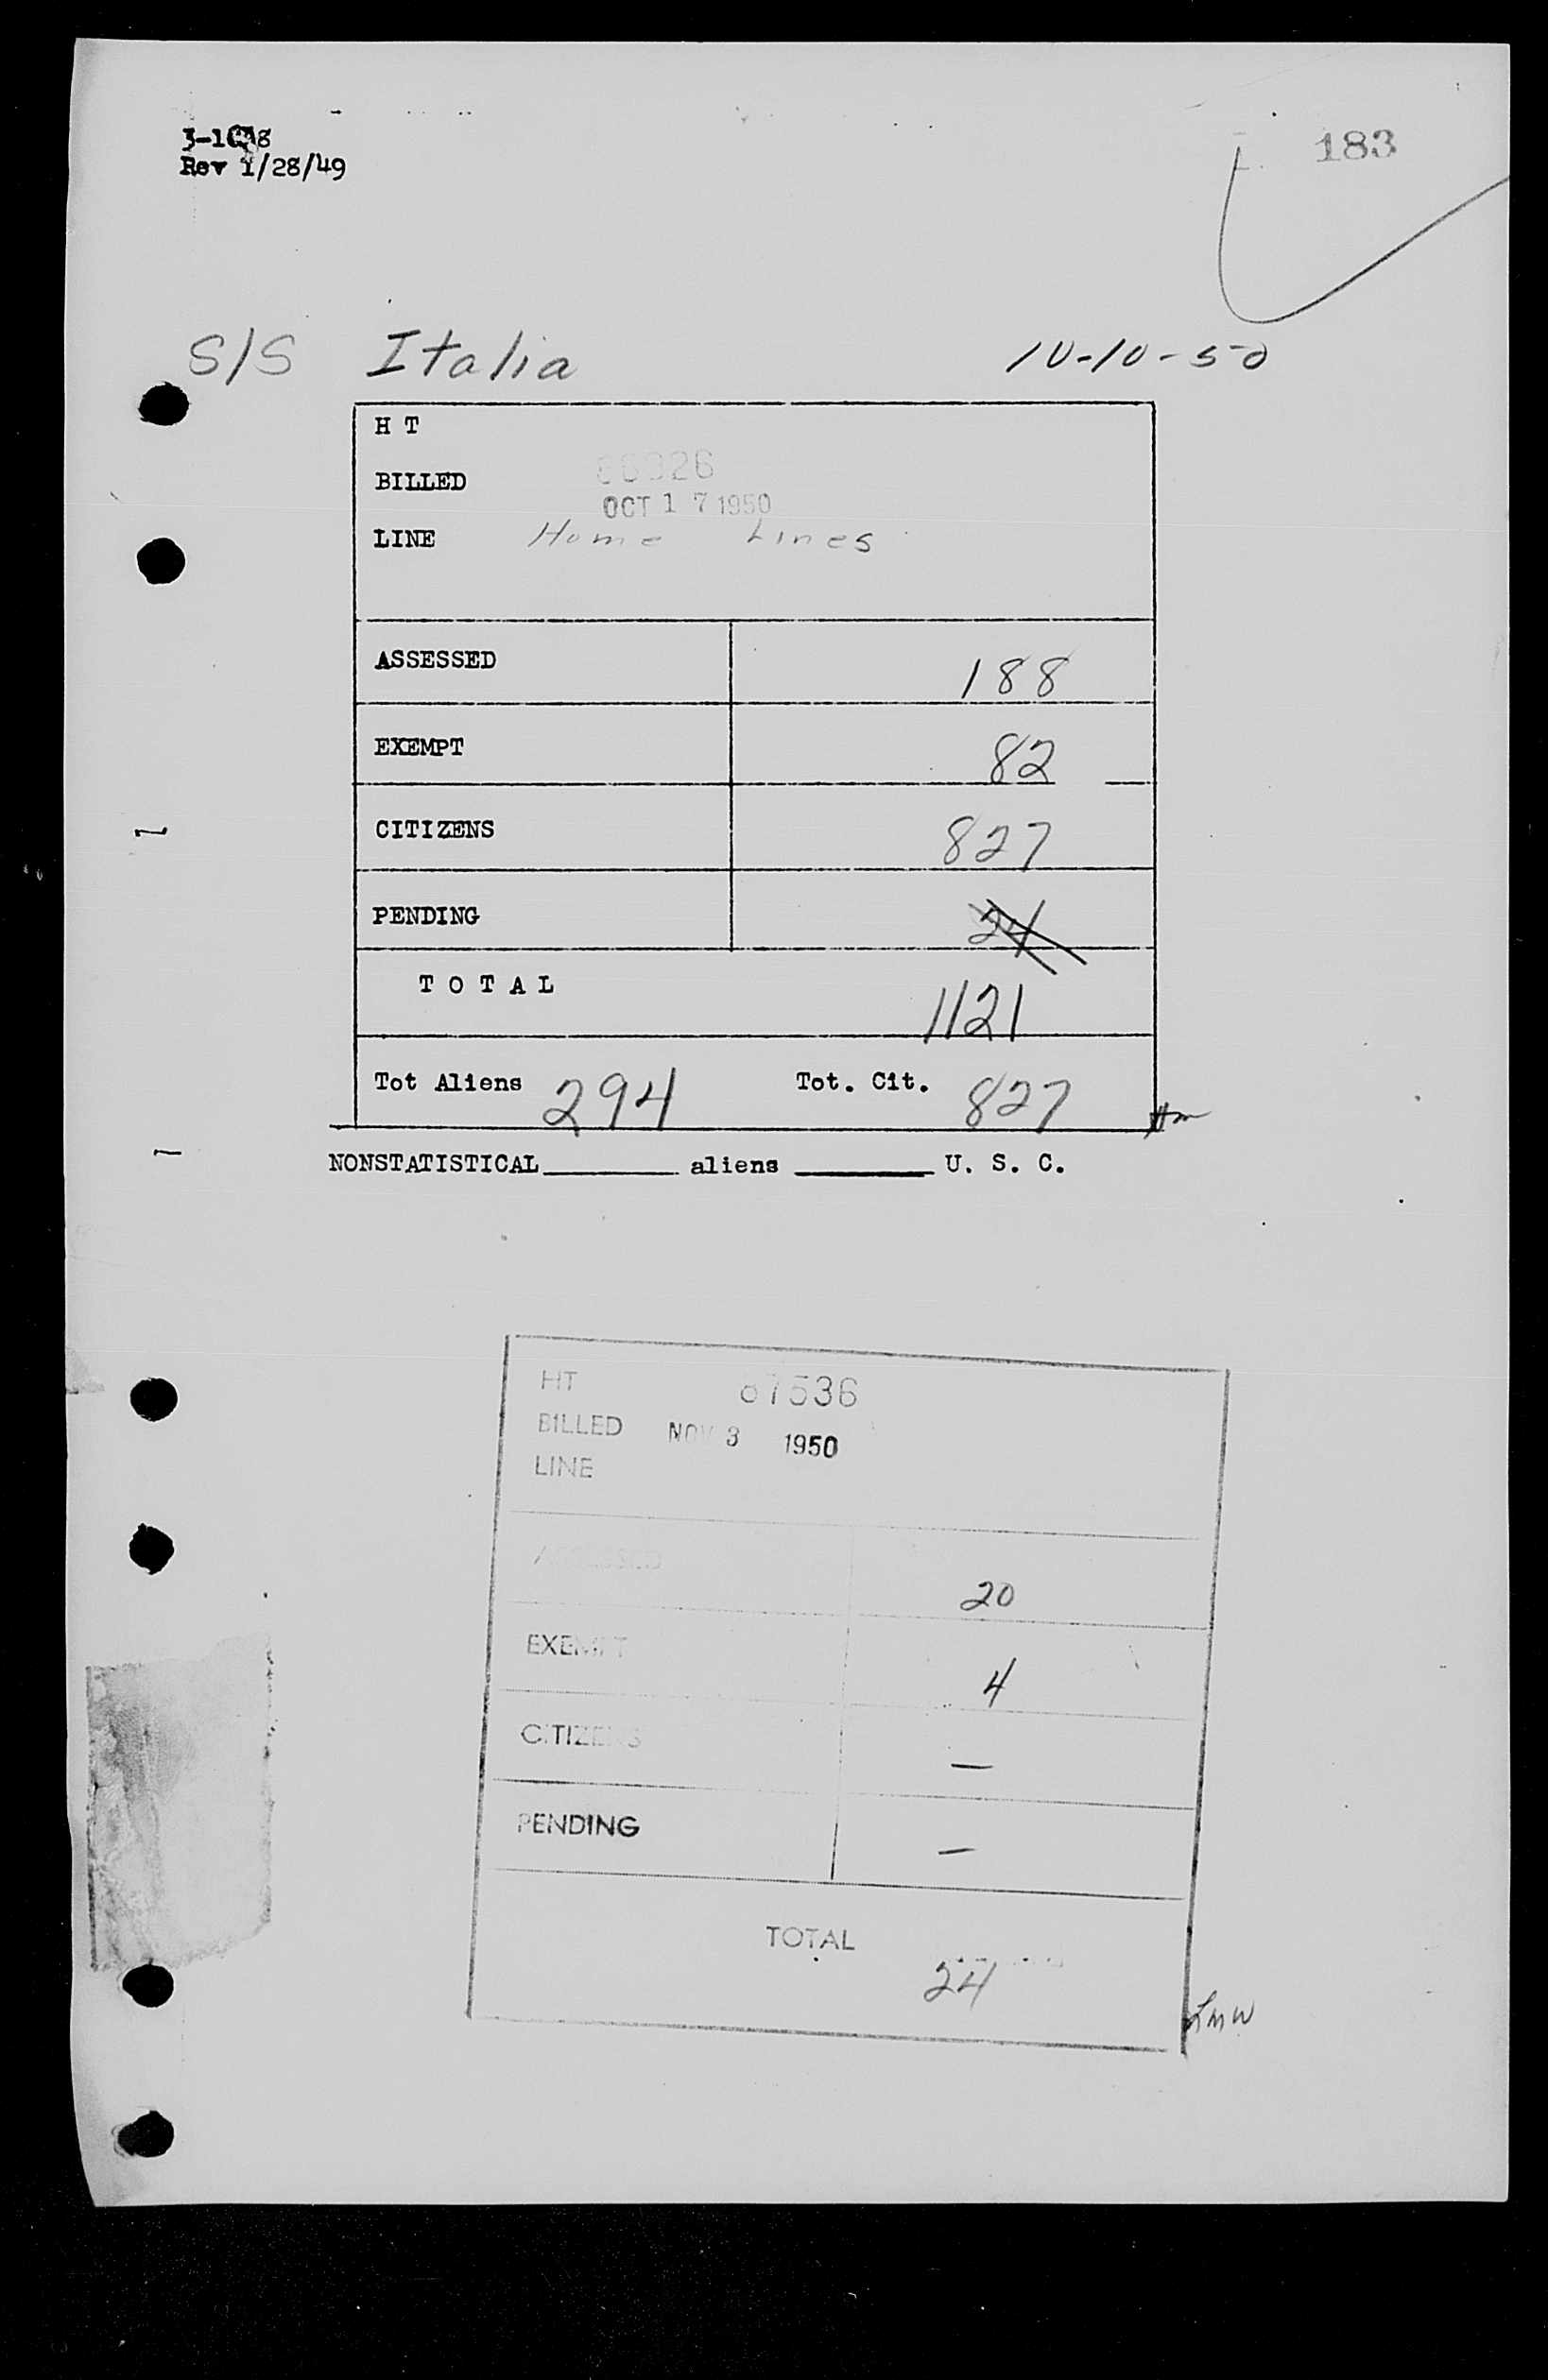 Rev 1/28/49
183
S/S Italia 10-10-50
H T
BILLED
OCT 17 1950
LINE Home Lines
ASSESSED 188
EXEMPT 82
CITIZENS 827
PENDING 24
T O T A L 1121
Tot Aliens 294 Tot. Cit. 827
NONSTATISTICAL aliens U. S. C.
HT 67536
BILLED NOV 3 1950
LINE
ASSESSED 20
EXEMPT 4
CITIZENS —
PENDING —
TOTAL
24